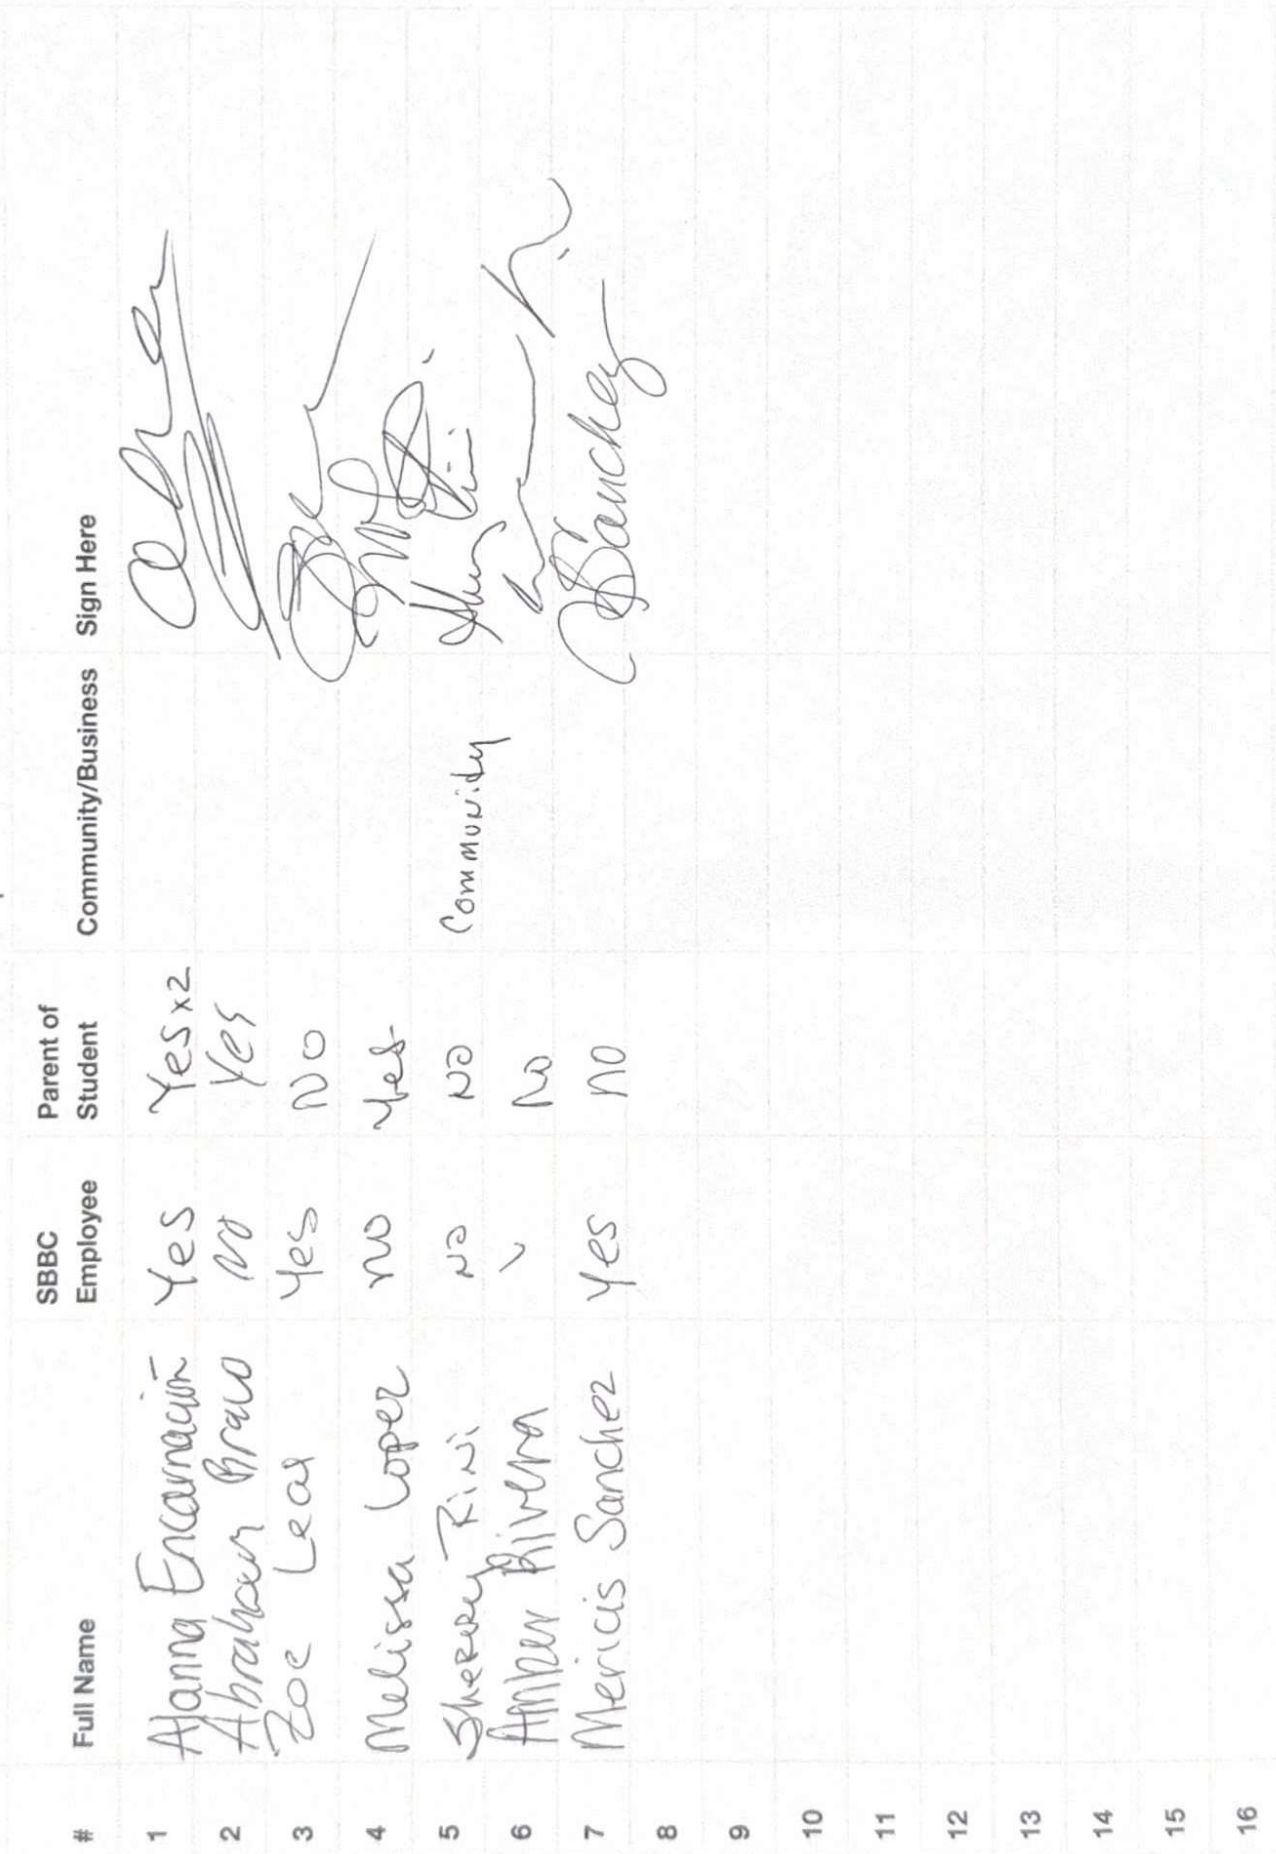 # Full Name SBBC Employee Parent of Student Community/Business Sign Here
1 Alanna Encarnación Yes Yes x2
2 Abraham Bravo NO Yes
3 Zoe Leal Yes NO
4 Melissa Lopez no Yes
5 Sherry Rini No No Community
6 Amber Rivera No
7 Mericis Sanchez Yes no Sanchez
8
9
10
11
12
13
14
15
16